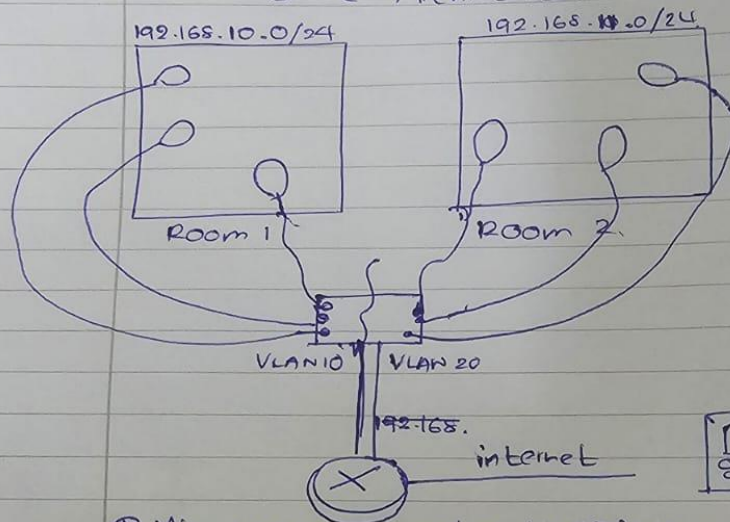 192.168.10.0/24
192.168. .0/24
Room 1
Room 2.
VLAN 10
VLAN 20
192.168.
internet